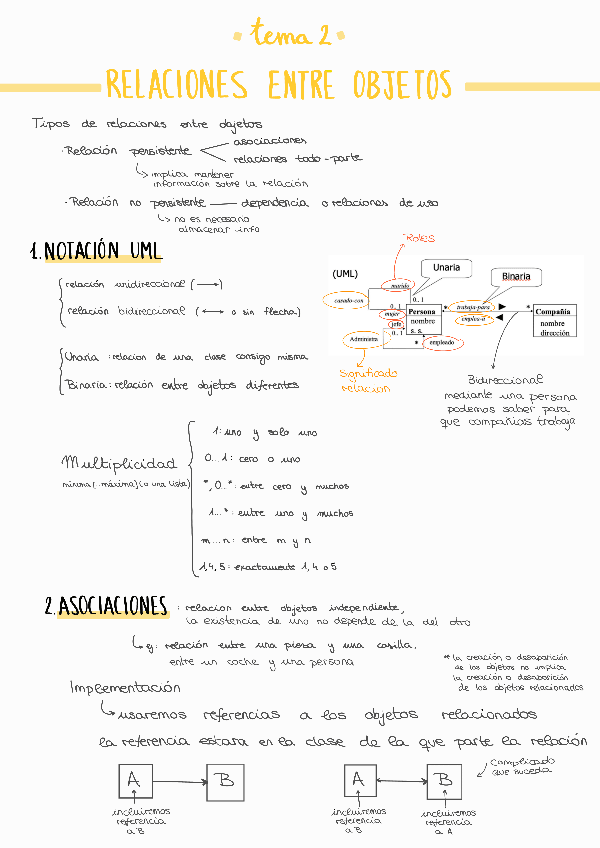 tema 2
RELACIONES ENTRE OBJETOS
Tipos de relaciones entre objetos
· Relación persistente
asociaciones
relaciones todo-parte
implica mantener
información sobre la relación
· Relación no persistente — dependencia o relaciones de uso
no es necesario
almacenar info
1. NOTACIÓN UML
relación unidireccional (⟶)
relación bidireccional (⟷ o sin flecha)
Unaria: relación de una clase consigo misma
Binaria: relación entre objetos diferentes
ROLES
(UML)
Unaria
Binaria
marido
casado-con
0..1
0..1
mujer
jefe
0..1
Administra
*
empleado
Persona
nombre
s. s.
*
trabaja-para
*
emplea-a
Compañía
nombre
dirección
Significado
relación
Bidireccional
mediante una persona
podemos saber para
que compañías trabaja
Multiplicidad
mínima[..máxima] (o una lista)
1: uno y solo uno
0...1: cero o uno
*, 0..*: entre cero y muchos
1...*: entre uno y muchos
m...n: entre m y n
1,4,5: exactamente 1, 4 o 5
2. ASOCIACIONES : relación entre objetos independiente,
la existencia de uno no depende de la del otro
eg: relación entre una pieza y una casilla,
entre un coche y una persona
* la creación o desaparición
de los objetos no implica
la creación o desaparición
de los objetos relacionados
Implementación
usaremos referencias a los objetos relacionados
la referencia estara en la clase de la que parte la relación
A
B
incluiremos
referencia
a B
A
B
complicado
que suceda
incluiremos
referencia
a B
incluiremos
referencia
a A